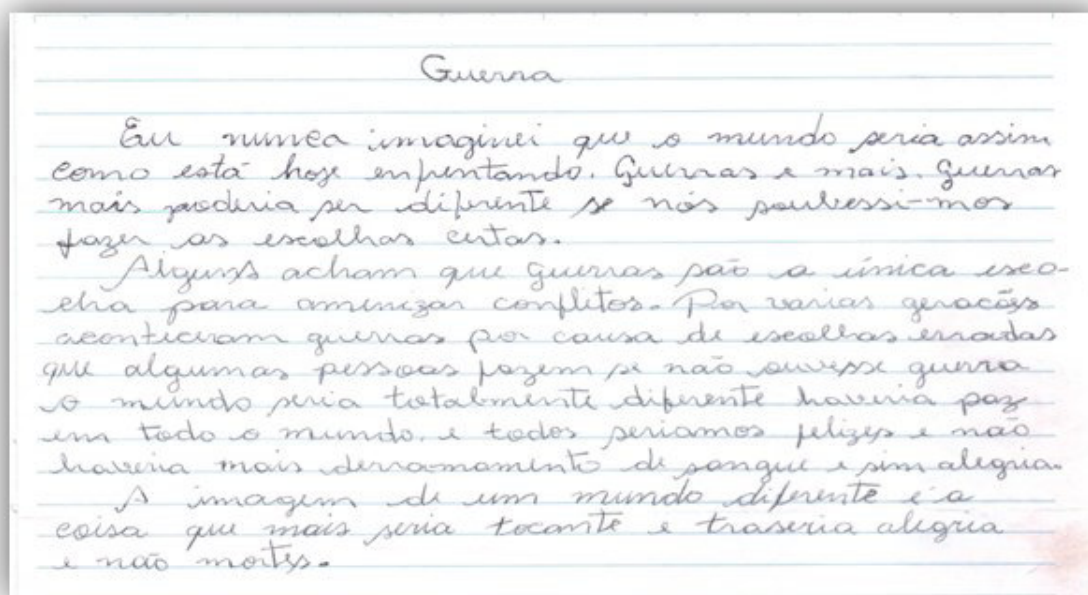 Guerra
Eu nunca imaginei que o mundo seria assim
como está hoje enfrentando. Guerras e mais. guerras
mais poderia ser diferente se nós soubessi-mos
fazer as escolhas certas.
Alguns acham que guerras são a única esco-
lha para amenizar conflitos. Por varias gerações
aconteceram guerras por causa de escolhas erradas
que algumas pessoas fazem se não ouvesse guerra
o mundo seria totalmente diferente haveria paz
em todo o mundo. e todos seriamos felizes e não
haveria mais derramamento de sangue e sim alegria.
A imagem de um mundo diferente é a
coisa que mais seria tocante e traseria alegria
e não mortes.